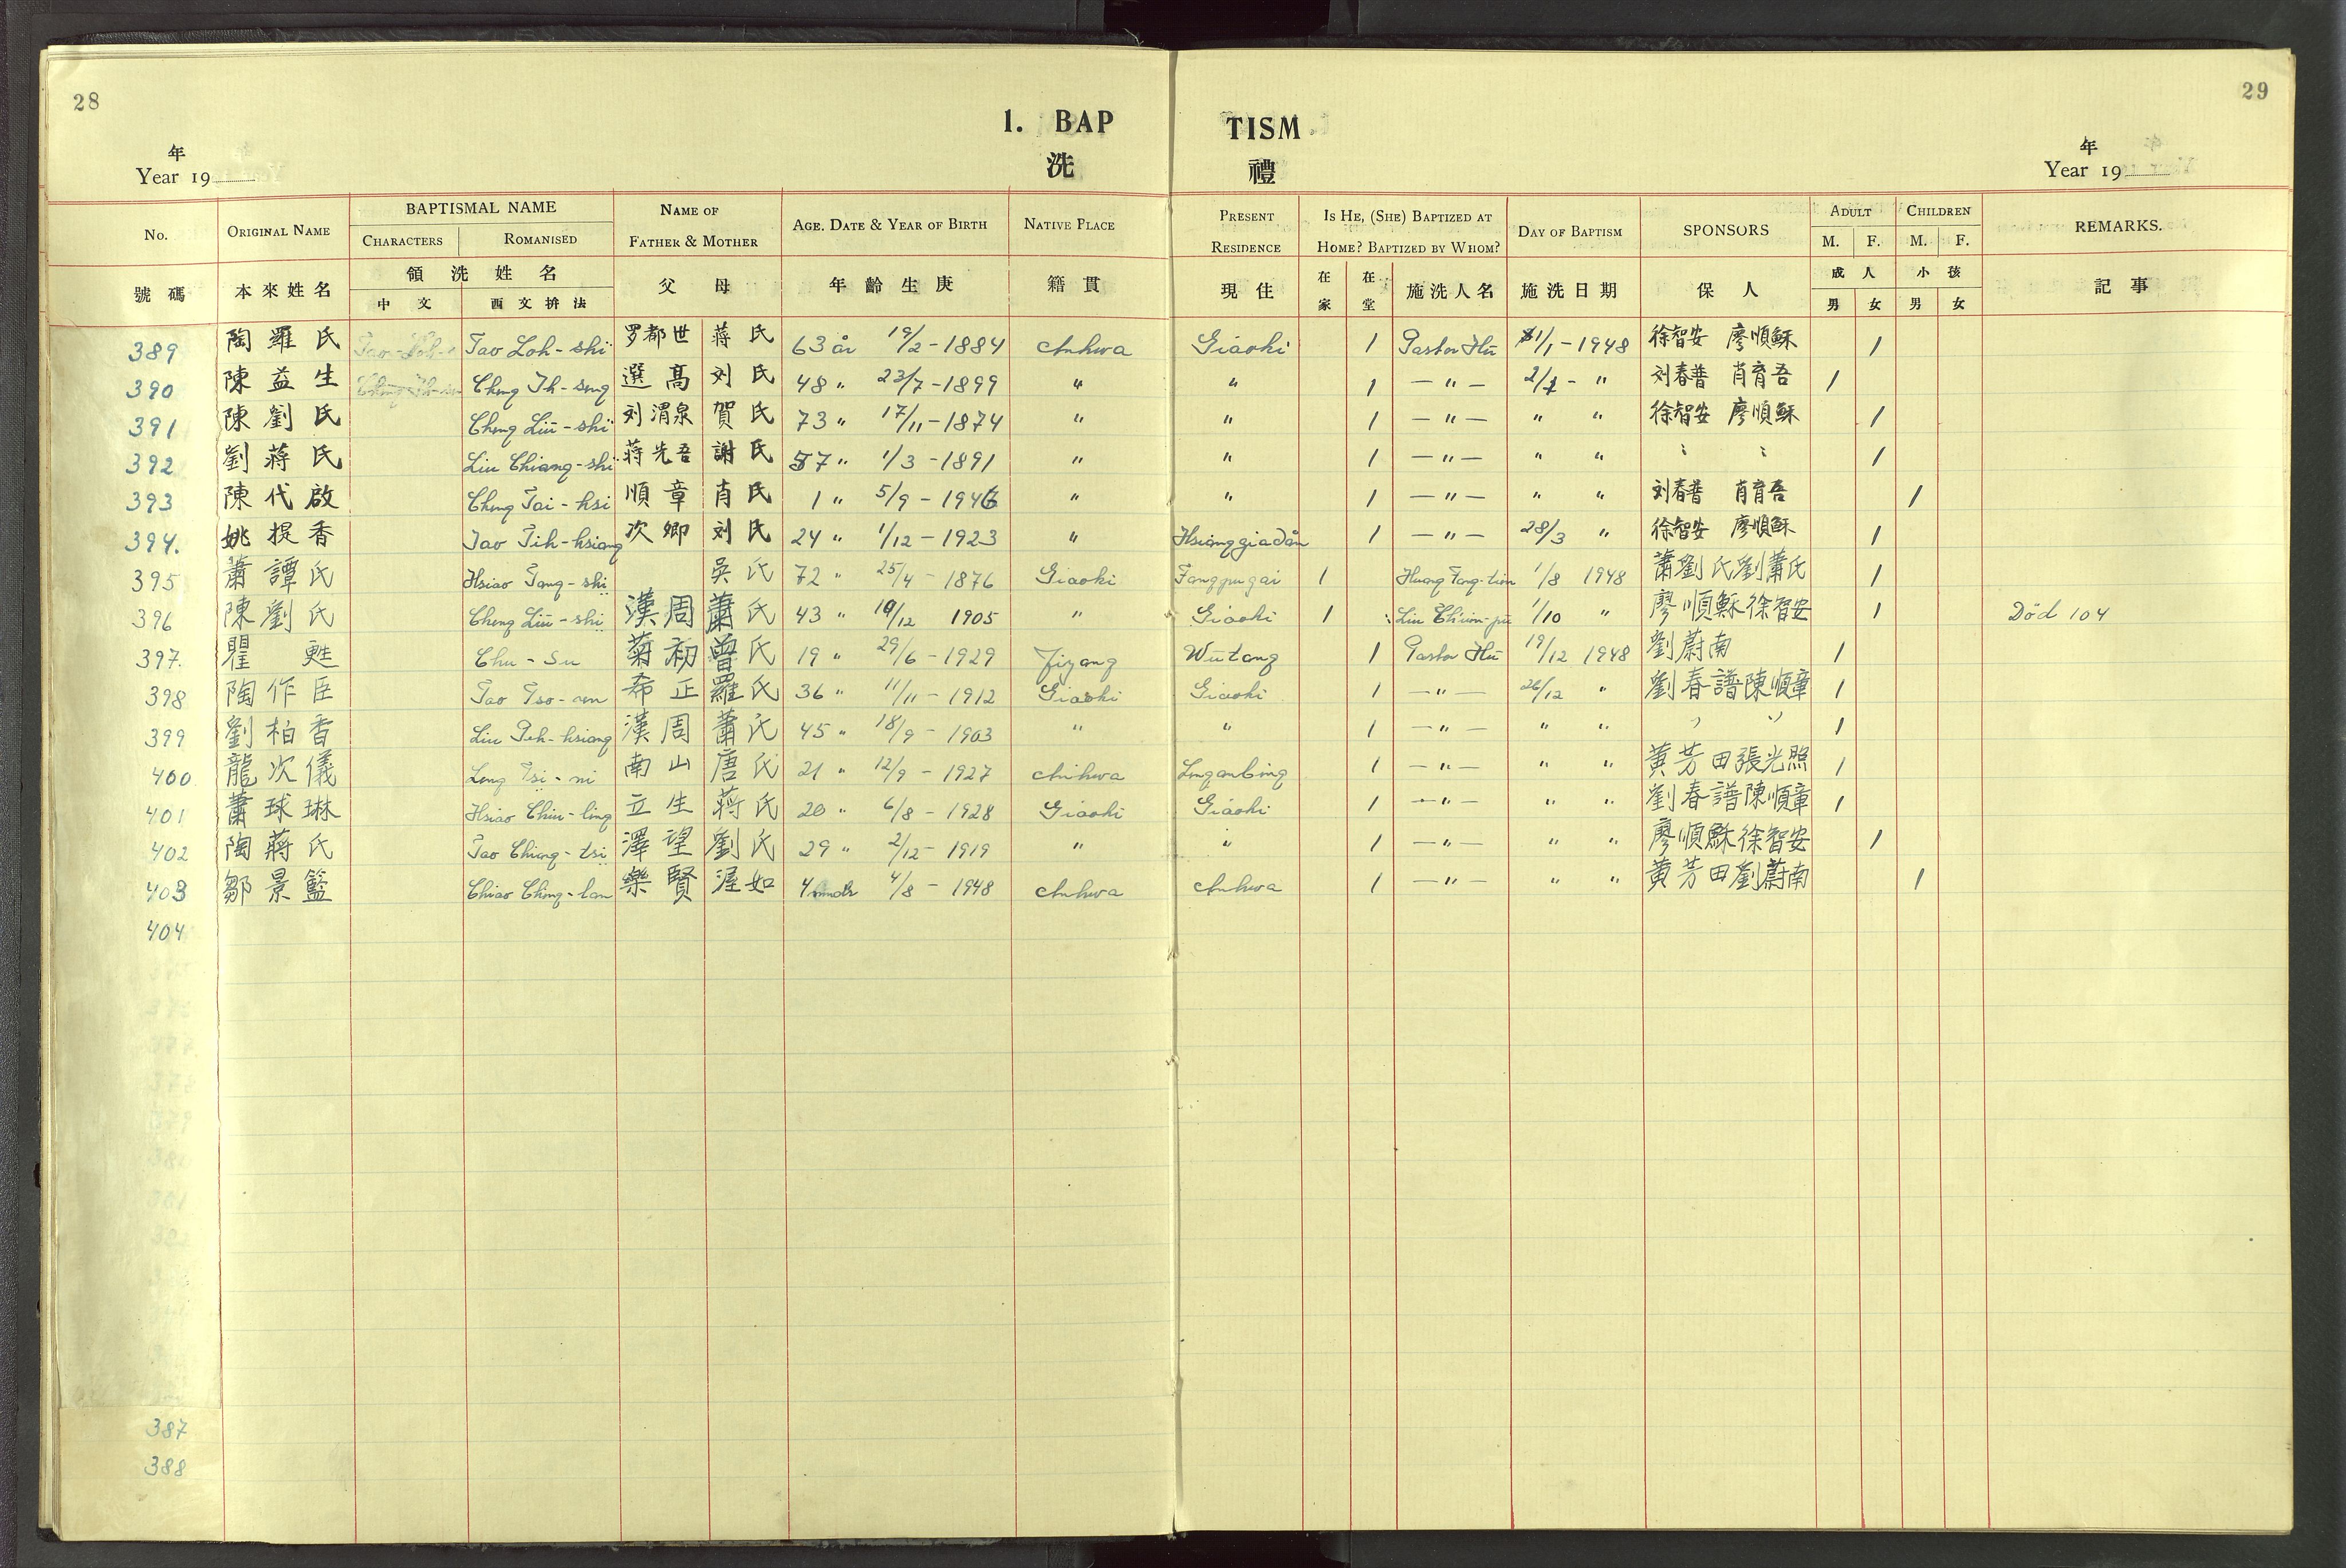 28
29
1. BAP TISM
洗 禮
年 年
Year 19 Year 19
No. ORIGINAL NAME BAPTISMAL NAME NAME OF FATHER & MOTHER AGE. DATE & YEAR OF BIRTH NATIVE PLACE PRESENT RESIDENCE IS HE, (SHE) BAPTIZED AT HOME? BAPTIZED BY WHOM? DAY OF BAPTISM SPONSORS ADULT CHILDREN REMARKS.
CHARACTERS ROMANISED M. F. M. F.
號碼 本來姓名 領洗姓名 父 母 年齡生庚 籍貫 現住 在家 在堂 施洗人名 施洗日期 保人 成人 小孩 記事
中文 西文拚法 男 女 男 女
389 陶羅氏 Tao Loh-shi 罗都世 蒋氏 63 år 19/2-1884 Anhwa Giaoki 1 Pastor Hü 1/1-1948 徐智安 廖順穌 1
390 陳益生 Cheng Ih-seng 選髙 刘氏 48 " 23/7-1899 " " 1 -"- 2/1- " 刘春普 肖育吾 1
391 陳劉氏 Cheng Liu-shi 刘渭泉 賀氏 73 " 17/11-1874 " " 1 -"- " " 徐智安 廖順穌 1
392 劉蒋氏 Liu Chiang-shi 蒋先吾 謝氏 57 " 1/3-1891 " " 1 -"- " " " " 1
393 陳代啟 Cheng Tai-hsi 順章 肖氏 1 " 5/9-1946 " " 1 -"- " " 刘春普 肖育吾 1
394. 姚提香 Jao Tih-hsiang 次卿 刘氏 24 " 1/12-1923 " Hsianggiadån 1 -"- 28/3 " 徐智安 廖順穌 1
395 蕭譚氏 Hsiao Tang-shi 吳氏 72 " 25/4-1876 Giaoki Fangpugai 1 Huang Fang-tien 1/8 1948 蕭劉氏劉蕭氏 1
396 陳劉氏 Cheng Liu-shi 漢周 蕭氏 43 " 10/12 1905 " Giaoki 1 1/10 " 廖順穌徐智安 1 Död 104
397. 瞿甦 Chu-Su 菊初 曾氏 19 " 29/6-1929 Jiyang Wutang 1 Pastor Hü 19/12 1948 劉蔚南 1
398 陶作臣 希正 羅氏 36 " 11/11-1912 Giaoki Giaoki 1 -"- 26/12 " 劉春譜陳順章 1
399 劉柏香 Liu Peh-hsiang 漢周 蕭氏 45 " 18/9-1903 " " 1 -"- " " " " 1
400 龍次儀 Long Tsi-ni 南山 唐氏 21 " 12/9-1927 Anhwa 1 -"- " " 黄芳田張光照 1
401 蕭球琳 Hsiao Chiu-ling 立生 蒋氏 20 " 6/8-1928 Giaoki Giaoki 1 -"- " " 劉春譜陳順章 1
402 陶蔣氏 Tao Chiang-tsi 澤望 劉氏 29 " 2/12-1919 " " 1 -"- " " 廖順穌徐智安 1
403 鄒景籃 Chiao Ching-lan 樂賢 渥如 4 mndr 4/8-1948 Anhwa Anhwa 1 -"- " " 黄芳田劉蔚南 1
404
387
388